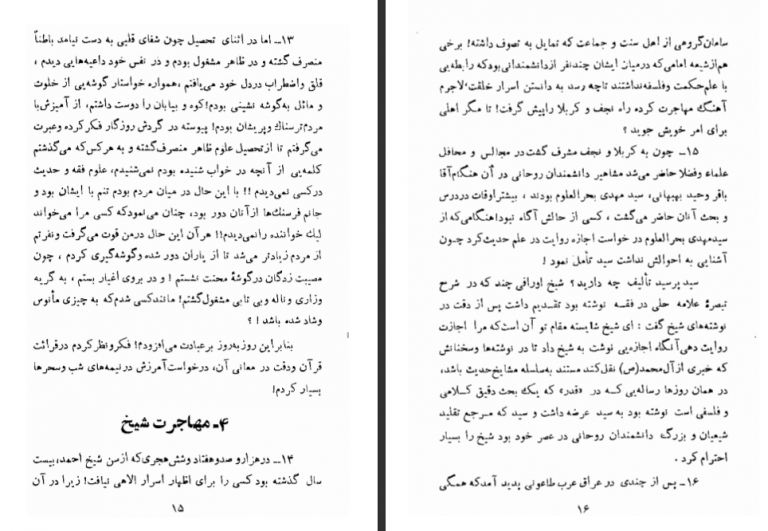 ۱۳ـ اما در اثنای تحصیل چون شفای قلبی به دست نیامد باطناً
منصرف گشته و در ظاهر مشغول بودم و در نفس خود داعیه‌هایی دیدم ،
قلق واضطراب دردل خود می‌یافتم ،همواره خواستار گوشه‌یی از خلوت
و مائل به‌گوشه نشینی بودم!کوه و بیابان را دوست داشتم، از آمیزش‌با
مردم‌ترسناك وپریشان بودم! پیوسته در گردش روزگار فکرکرده وعبرت
می‌گرفتم تا ازتحصیل علوم ظاهر منصرف‌گشته و به هرکس‌که می‌گذشتم
کلمه‌یی از آنچه در خواب شنیده بودم نمی‌شنیدم، علوم فقه و حدیث
درکسی نمی‌دیدم !! با این حال در میان مردم بودم تنم با ایشان بود و
جانم فرسنگ‌ها ازآنان دور بود، چنان می‌نمودکه کسی مرا می‌خواند
لیك خواننده رانمی‌دیدم!! هرآن این حال درمن قوت می‌گرفت ونفرتم
از مردم زیادتر می‌شد تا از یاران دور شده وگوشه‌گیری کردم ، چون
مصیبت زدگان درگوشهٔ محنت نشستم ! و در بروی اغیار بستم ، به گریه
وزاری وناله و بی تابی مشغول‌گشتم! مانندکسی شدم‌که به چیزی مأنوس
وشاد شده باشد ! ؟
بنابراین روزبه‌روز برعبادت می‌افزودم! فکرونظرکردم درقرائت
قرآن ودقت در معانی آن، درخواست‌آمرزش درنیمه‌های شب وسحرها
بسیار کردم!
۴ـ مهاجرت شیخ
۱۴ـ درهزارو صدوهفتاد وشش‌هجری‌که ازسن شیخ احمد، بیست
سال گذشته بود کسی را برای اظهار اسرار الاهی نیافت! زیرا در آن
۱۵
سامان‌گروهی از اهل سنت و جماعت که تمایل به تصوف داشتند! برخی
هم‌ازشیعه امامی‌که درمیان ایشان چندنفر ازدانشمندانی بودکه رابطه‌یی
با علم‌حکمت وفلسفه‌نداشتند تاچه رسد به دانستن اسرار خلقت‌.لاجرم
آهنگ مهاجرت کرده راه نجف و کربلا راپیش گرفت! تا مگر اهلی
برای امر خویش جوید ؟
۱۵ـ چون به کربلا و نجف مشرف گشت‌در مجالس و محافل
علماء وفضلا حاضر می‌شد مشاهیر دانشمندان روحانی در آن هنگام‌آقا
باقر وحید بهبهانی، سید مهدی بحرالعلوم بودند ، بیشتراوقات دردرس
و بحث آنان حاضر می‌گشت ، کسی از حالش آگاه نبود!هنگامی‌که‌از
سیدمهدی بحرالعلوم در خواست اجازه روایت در علم حدیث‌کرد چون
آشنایی به احوالش نداشت سید تأمل نمود !
سید پرسید تألیف چه دارید؟ شیخ اوراقی چند که در شرح
تبصرهٔ علامه حلی در فقه نوشته بود تقدیم داشت پس از دقت در
نوشته‌های شیخ گفت : ای شیخ شایسته مقام تو آن است‌که مرا اجازت
روایت دهی‌آنگاه اجازه‌یی نوشت به شیخ داد تا در نوشته‌ها وسخنانش
که خبری ازآل‌محمد(ص) نقل‌کند مستند به‌سلسله مشایخ‌حدیث باشد،
در همان روزها رساله‌یی که در «قدر» که یك بحث دقیق کلامی
و فلسفی است نوشته بود به سید عرضه داشت و سید که مرجع تقلید
شیعیان و بزرگ دانشمندان روحانی در عصر خود بود شیخ را بسیار
احترام کرد .
۱۶ـ پس از چندی در عراق عرب طاعونی پدید آمدکه همگی
۱۶